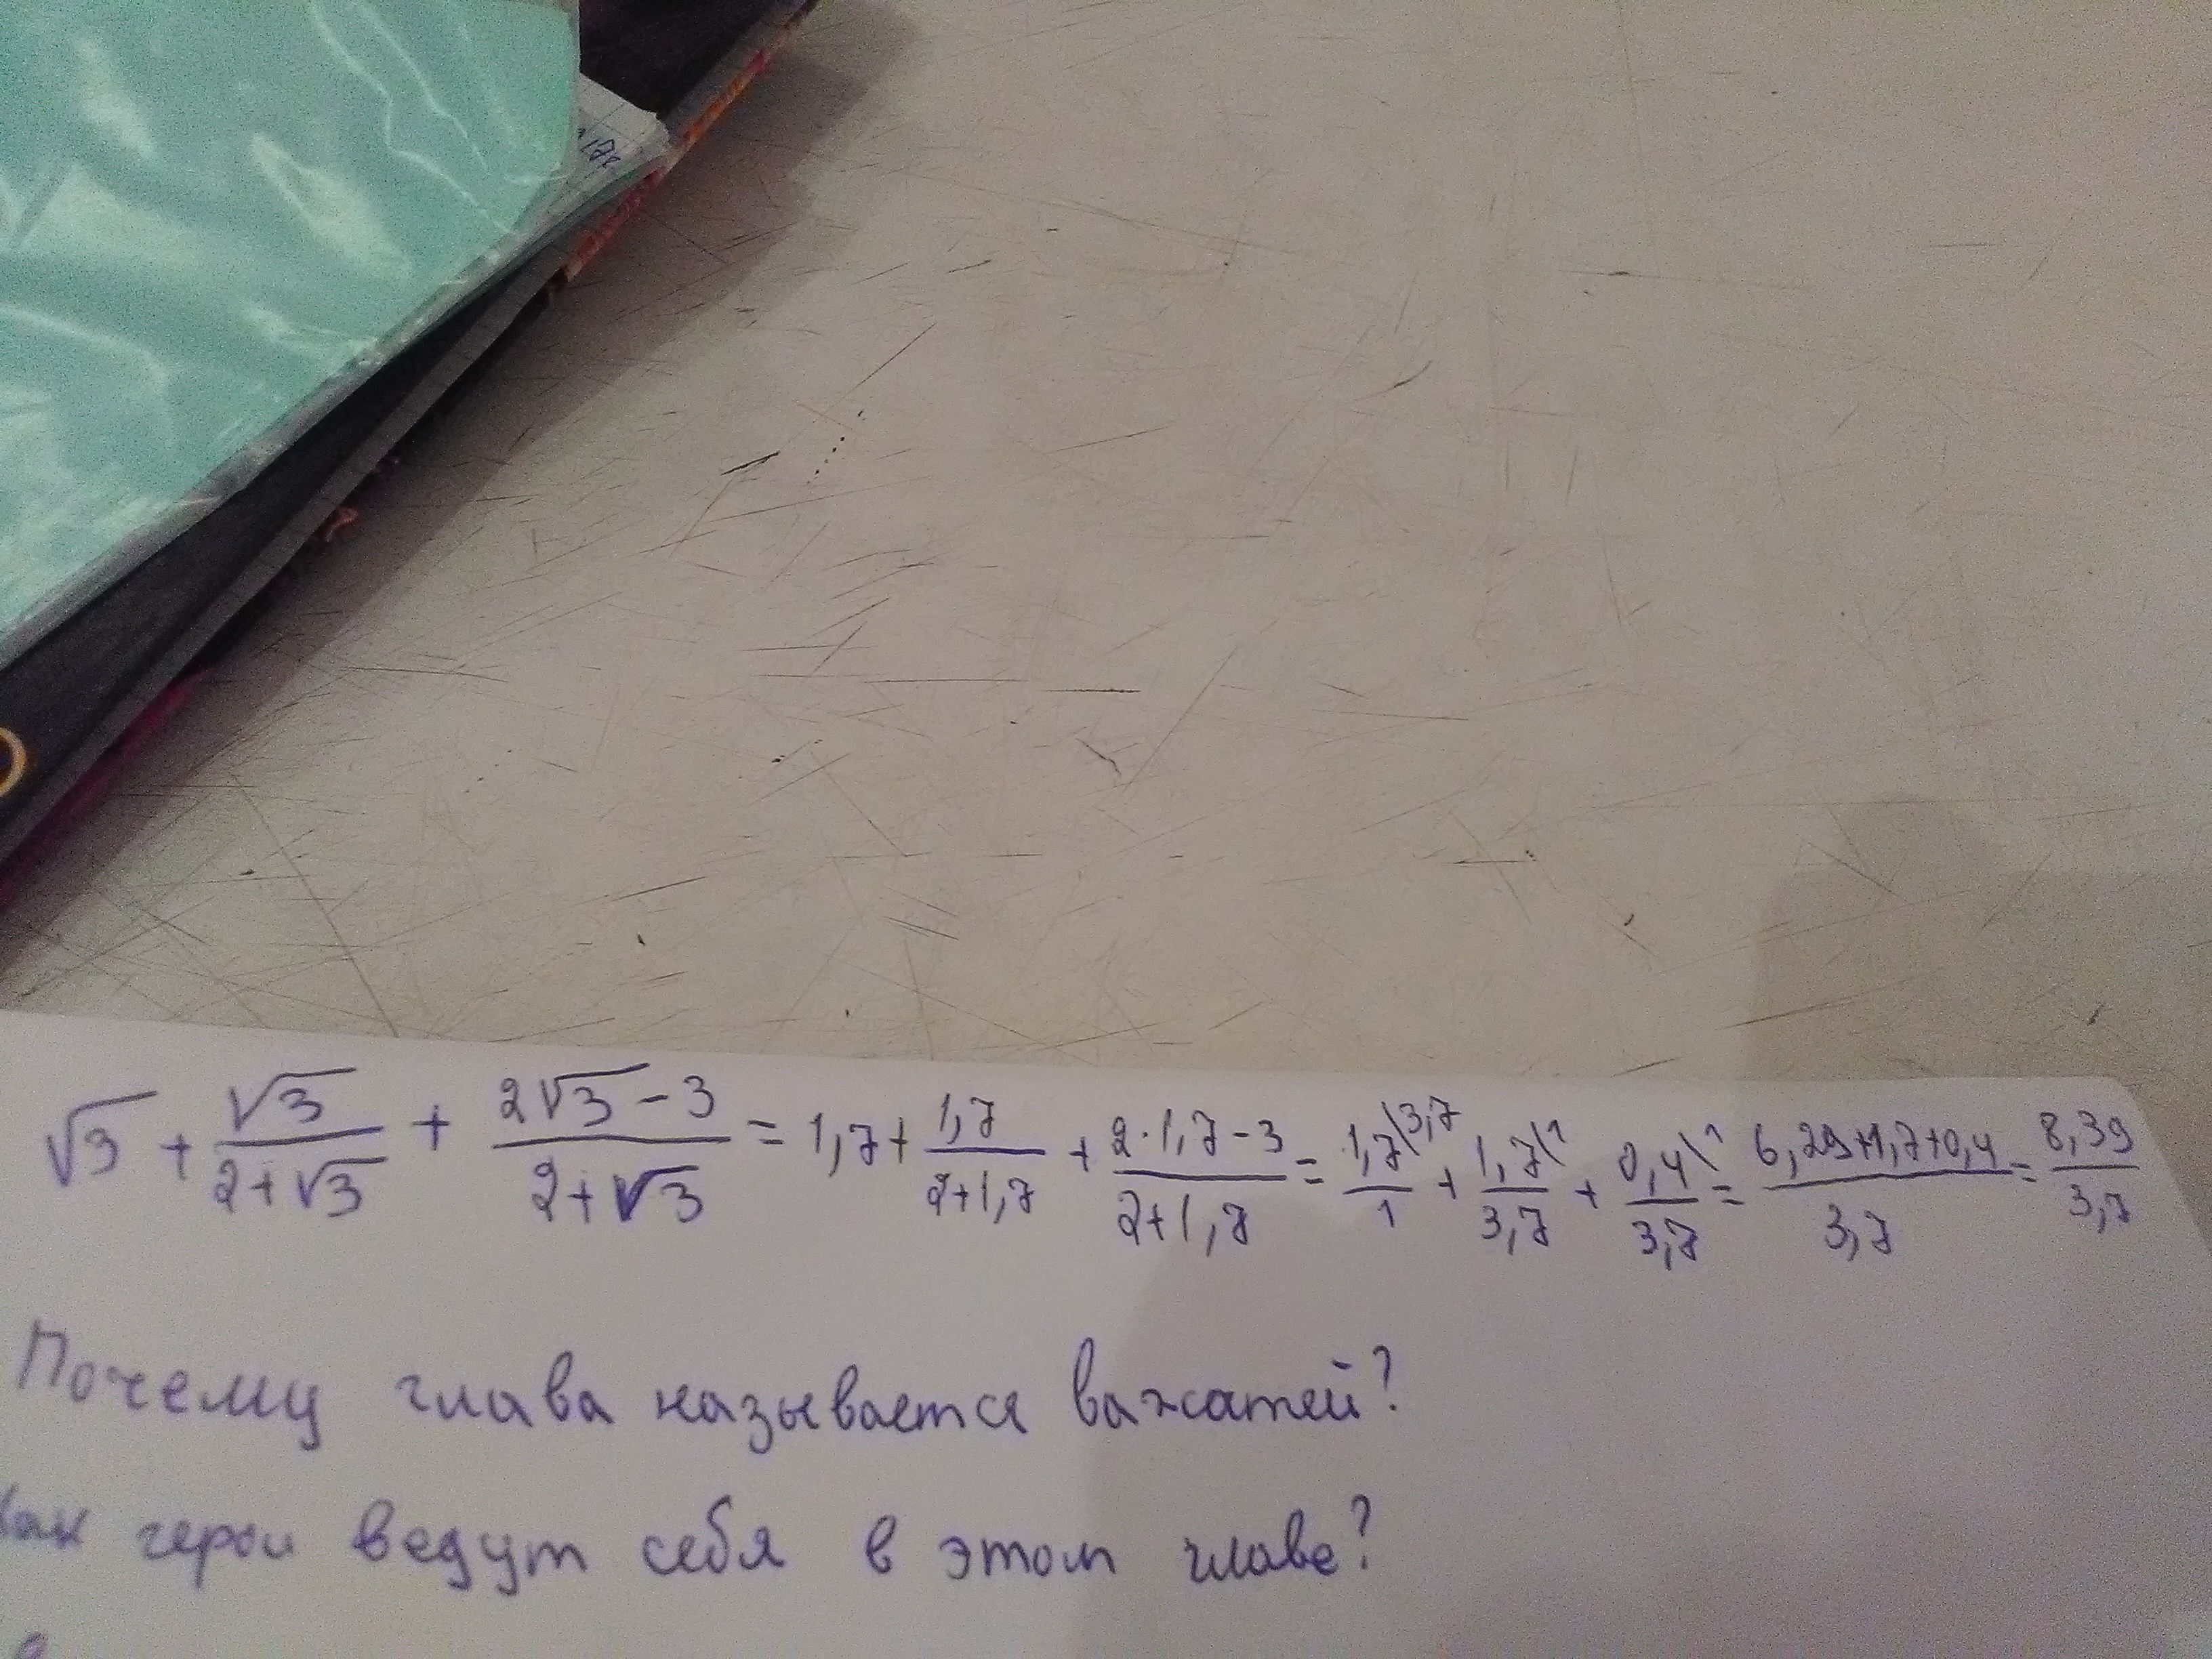 √3 + √3/(2+√3) + (2√3-3)/(2+√3) = 1,7 + 1,7/(2+1,7) + (2·1,7-3)/(2+1,7) = 1,7\3,7/1 + 1,7\1/3,7 + 0,4\1/3,7 = (6,29+1,7+0,4)/3,7 = 8,39/3,7
Почему глава называется важатей?
Как герои ведут себя в этом главе?